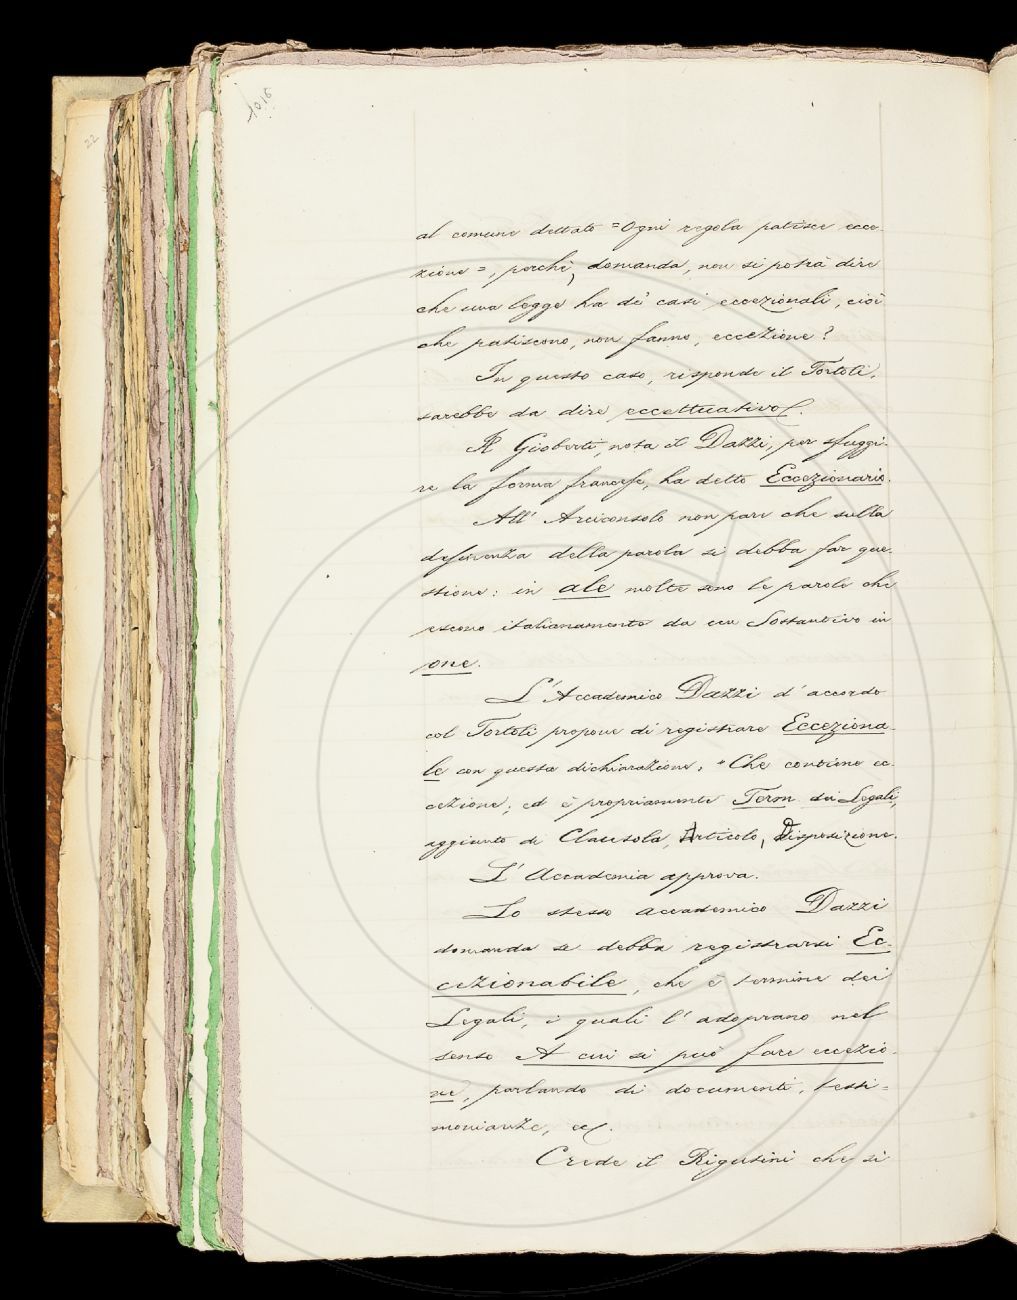 1016
22
al comune dettato = Ogni regola patisce ecce-
zione =, perchè, domanda, non si potrà dire
che una legge ha de' casi eccezionali, cioè
che patiscono, non fanno, eccezione?
In questo caso, risponde il Tortoli,
sarebbe da dire eccettuativo.
Il Gioberti, nota il Dazzi, per sfuggi-
re la forma francese, ha detto Eccezionario.
All' Arciconsolo non pare che sulla
desinenza della parola si debba far que-
stione: in ale molte sono le parole che
escono italianamente da un Sostantivo in
one.
L'Accademico Dazzi d'accordo
col Tortoli propone di registrare Ecceziona-
le con questa dichiarazione, "Che contiene ec-
cezione; ed è propriamente Term dei Legali,
aggiunto di Clausola, Articolo, Disposizione.
L'Accademia approva.
Lo stesso accademico Dazzi
domanda se debba registrarsi Ec-
cezionabile, che è termine dei
Legali, i quali l'adoprano nel
senso A cui si può fare eccezio-
ne, parlando di documenti, testi=
monianze, ec.
Crede il Rigutini che si